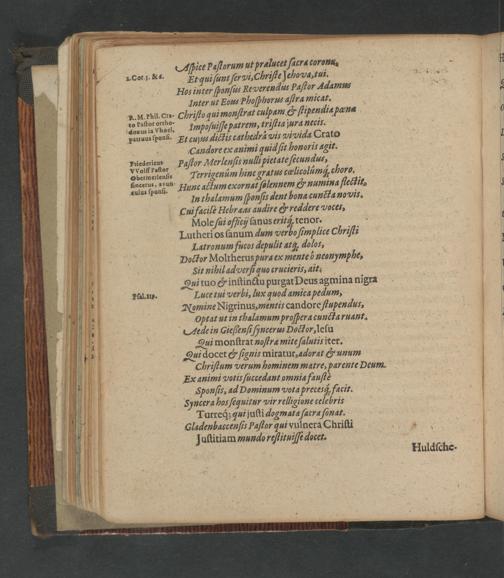 Aspice Pastorum ut prælucet sacra corona,
2. Cor. 3. & 6.
Et qui sunt servi, Christe Jehova, tui.
Hos inter sponsus Reverendus Pastor Adamus
Inter ut Eous Phosphorus astra micat.
R. M. Phil. Cra-
to Pastor ortho-
doxus in Vhoel,
patruus sponsi.
Christo qui monstrat culpam & stipendia pœna
Imposuisse patrem, tristia jura necis.
Et cujus dictis cathedrâ vis vivida Crato
Candore ex animi quid sit honoris agit.
Fridericus
VVolff Pastor
Obermerlensis
sincerus, avun-
culus sponsi.
Pastor Merlensis nulli pietate secundus,
Terrigenûm hinc gratus cœlicolûmq; choro.
Hunc actum exornat solennem & numina flectit,
In thalamum sponsis dent bona cuncta novis.
Cui facile Hebræas audire & reddere voces,
Mole sui officij sanus eritq; tenor.
Lutheri os sanum dum verbo simplice Christi
Latronum fucos depulit atq; dolos,
Doctor Moltherus pura ex mente ô neonymphe,
Sit nihil adversi quo crucieris, ait.
Qui tuo & instinctu purgat Deus agmina nigra
Psal. 119.
Luce tui verbi, lux quod amica pedum,
Nomine Nigrinus, mentis candore stupendus,
Optat ut in thalamum prospera cuncta ruant.
Aede in Giessensi syncerus Doctor, Iesu
Qui monstrat nostra mite salutis iter.
Qui docet & signis miratur, adorat & unum
Christum verum hominem matre, parente Deum.
Ex animi votis succedant omnia faustè
Sponsis, ad Dominum vota precesq; facit.
Syncera hos sequitur vir relligione celebris
Turreq; qui justi dogmata sacra sonat.
Gladenbaccensis Pastor qui vulnera Christi
Justitiam mundo restituisse docet.
Huldsche-